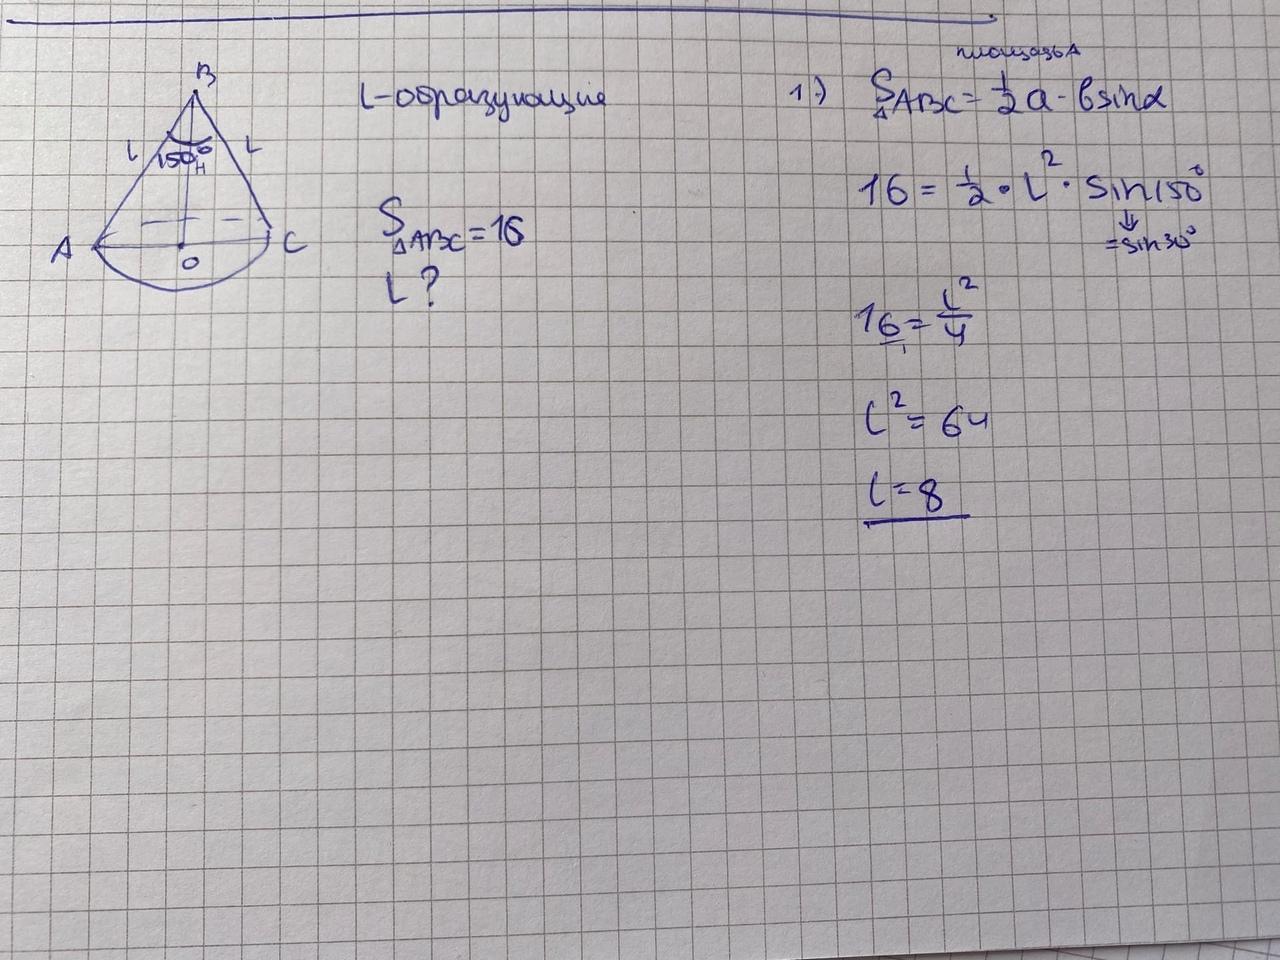 B
L
L
150°
H
A
C
O
L-образующие
S△ABC=16
L?
площадь△
1.) S△ABC=½a·bsinα
16=½·L²·sin150°
⇓
=sin30°
16=L²/4
L²=64
L=8